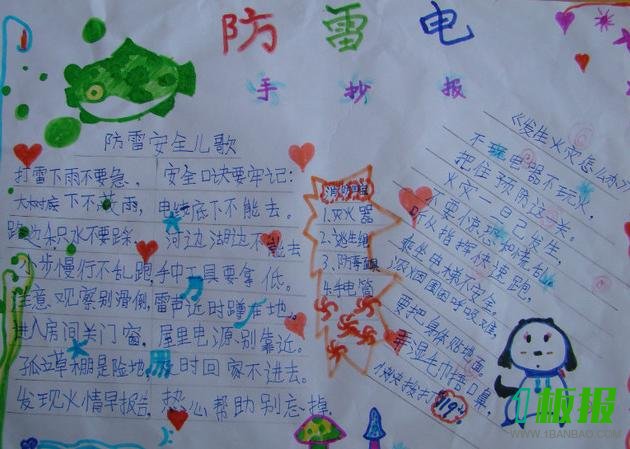 防雷电
手抄报
防雷安全儿歌
打雷下雨不要急，安全口诀要牢记：
大树底下不放雨，电线底下不能去。
路边积水不要踩，河边湖边不能去
小步慢行不乱跑，手中工具要拿低。
注意观察别滑倒，雷声近时蹲在地。
进入房间关门窗，屋里电源别靠近。
孤立草棚是险地，及时回家不进去。
发现火情早报告，热心帮助别忘掉。
1.灭火器
2.逃生绳
3、防毒面具
4.手电筒
《发生火灾怎么办》
不玩电器不玩火，
把住预防这一关。
火灾一旦已发生，
不要惊恐和慌乱。
听从指挥快速跑，
乘坐电梯不安全。
浓烟围困呼吸难，
要把身体贴地面。
手湿毛巾捂口鼻，
快快拨打119
板报
WWW.1BANBAO.COM